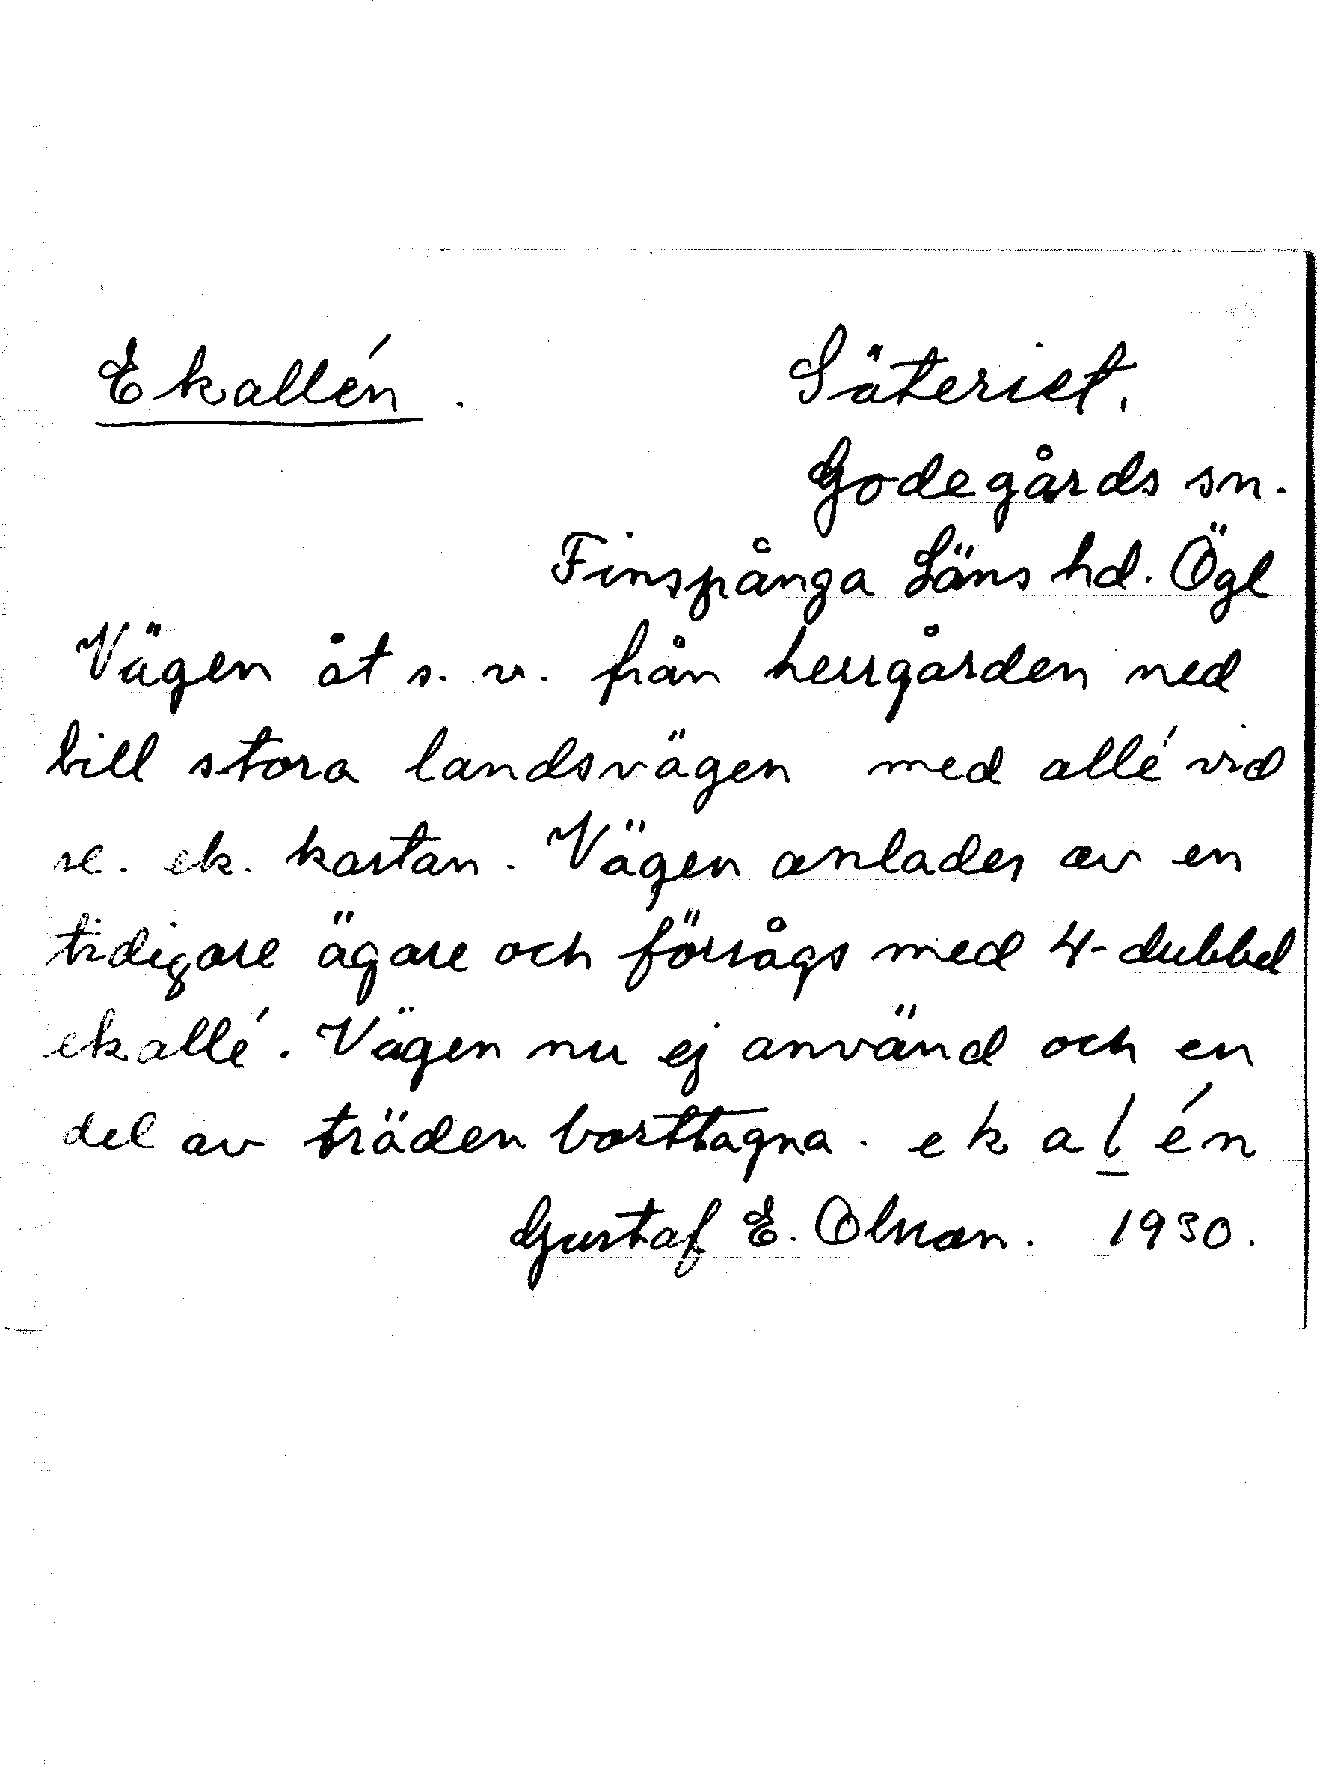 Ekallén. Säteriet.
Godegårds sn.
Finspånga Läns hd. Ögl
Vägen åt s. v. från herrgården ned
till stora landsvägen med allé vid
se. ek. kartan. Vägen anlades av en
tidigare ägare och försågs med 4-dubbel
ekallé. Vägen nu ej använd och en
del av träden borttagna. e k a l é n
Gustaf E. Olsson. 1930.